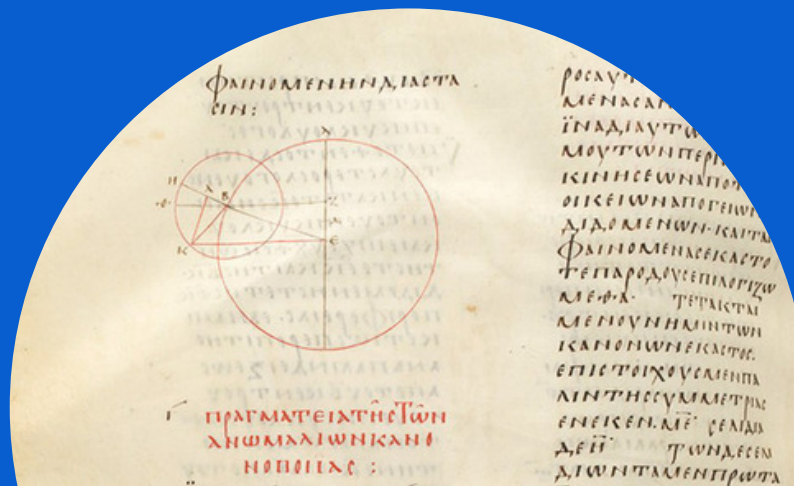 ΦΑΙΝΟΜΕΝΗΝΔΙΑϹΤΑ
ϹΙΝ:
Η
Β
Θ
Ζ
Κ
Ε
Γ ΠΡΑΓΜΑΤΕΙΑΤΗϹΤΩΝ
ΑΝΩΜΑΛΙΩΝΚΑΝΟ
ΝΟΠΟΙΙΑϹ :
ΡΟϹΑΥ
ΜΕΝΑϹΑ
ΪΝΑΔΙΑΥΤΩ
ΜΟΥΤΩΝΠΕΡΙ
ΚΙΝΗϹΕΩΝΑΠΟ
ΟΙΚΕΙΩΝΑΠΟΓΕΙΩΝ
ΔΙΔΟΜΕΝΩΝ·ΚΑΙΤΑ
ΦΑΙΝΟΜΕΝΑϹΕΚΑϹΤΟ
ΤΕΠΑΡΟΔΟΥϹΕΠΙΛΟΓΙΖΩ
ΜΕΘΑ· ΤΕΤΑΚΤΑΙ
ΜΕΝΟΥΝΗΜΙΝΤΩΝ
ΚΑΝΟΝΩΝΕΚΑϹΤΟϹ
ΕΠΙϹΤΟΙΧΟΥϹΜΕΝΠΑ
ΛΙΝΤΗϹϹΥΜΜΕΤΡΙΑϹ
ΕΝΕΚΕΝ.ΜΕ̅ ϹΕΛΙΔΙΑ
ΔΕΗ̅ ΤΩΝΔΕϹΕΛΙ
ΔΙΩΝΤΑΜΕΝΠΡΩΤΑ